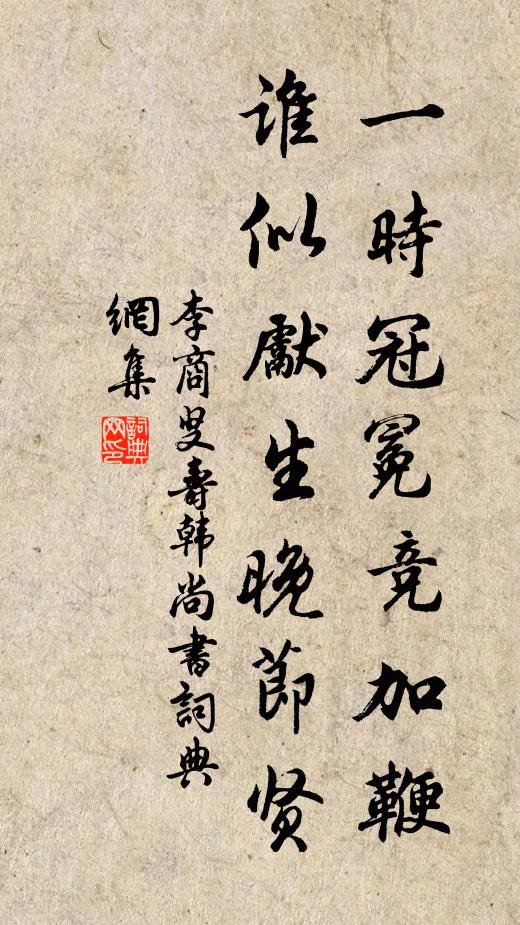 一時冠冕竞加鞭
谁似獻生晚節贤
李商叟壽韩尚書詞典
網集
詞典
网印